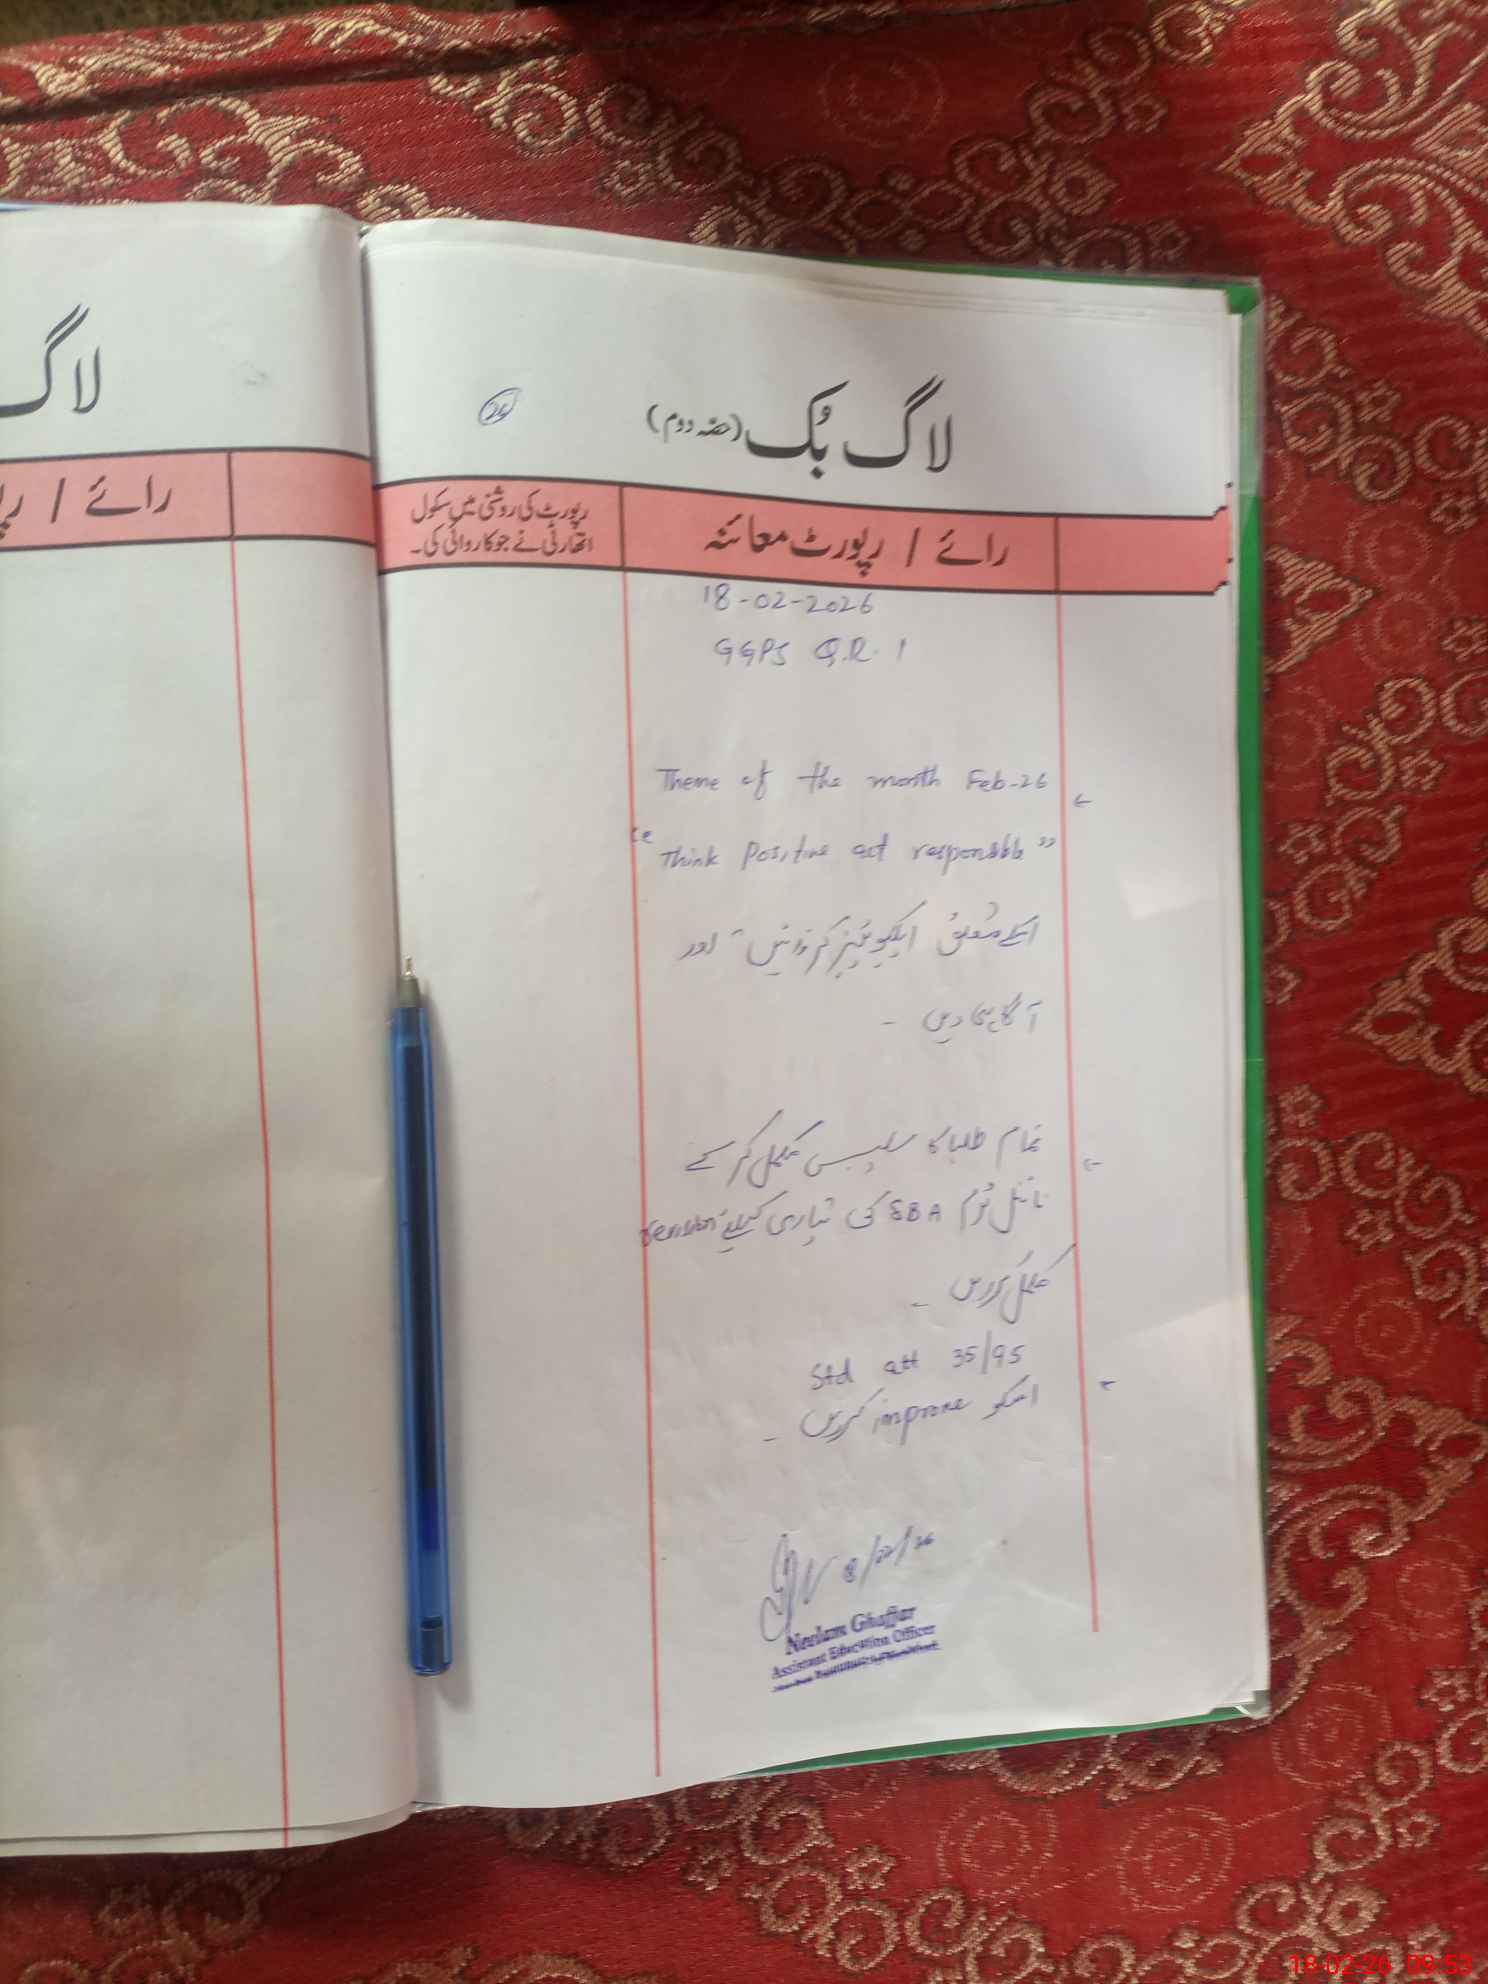 لاگ
رائے /
24
لاگ بُک (حصّہ دوم)
رائے / رپورٹ معائنہ
رپورٹ کی روشنی میں سکول
اتھارٹی نے جو کاروائی کی۔
18-02-2026
GGPS Q.R. 1
Theme of the month Feb-26
"Think Positive act responsible"
اسکے متعلق ایکٹیویٹیز کروائیں اور
آگاہی دیں -
تمام طلبا کا سلیبس مکمل کر کے
فائنل ٹرم SBA کی تیاری کیلئے revision
مکمل کریں -
Std att 35/95
اسکو improve کریں -
Neelam Ghaffar
Assistant Education Officer
18-02-26 09:53